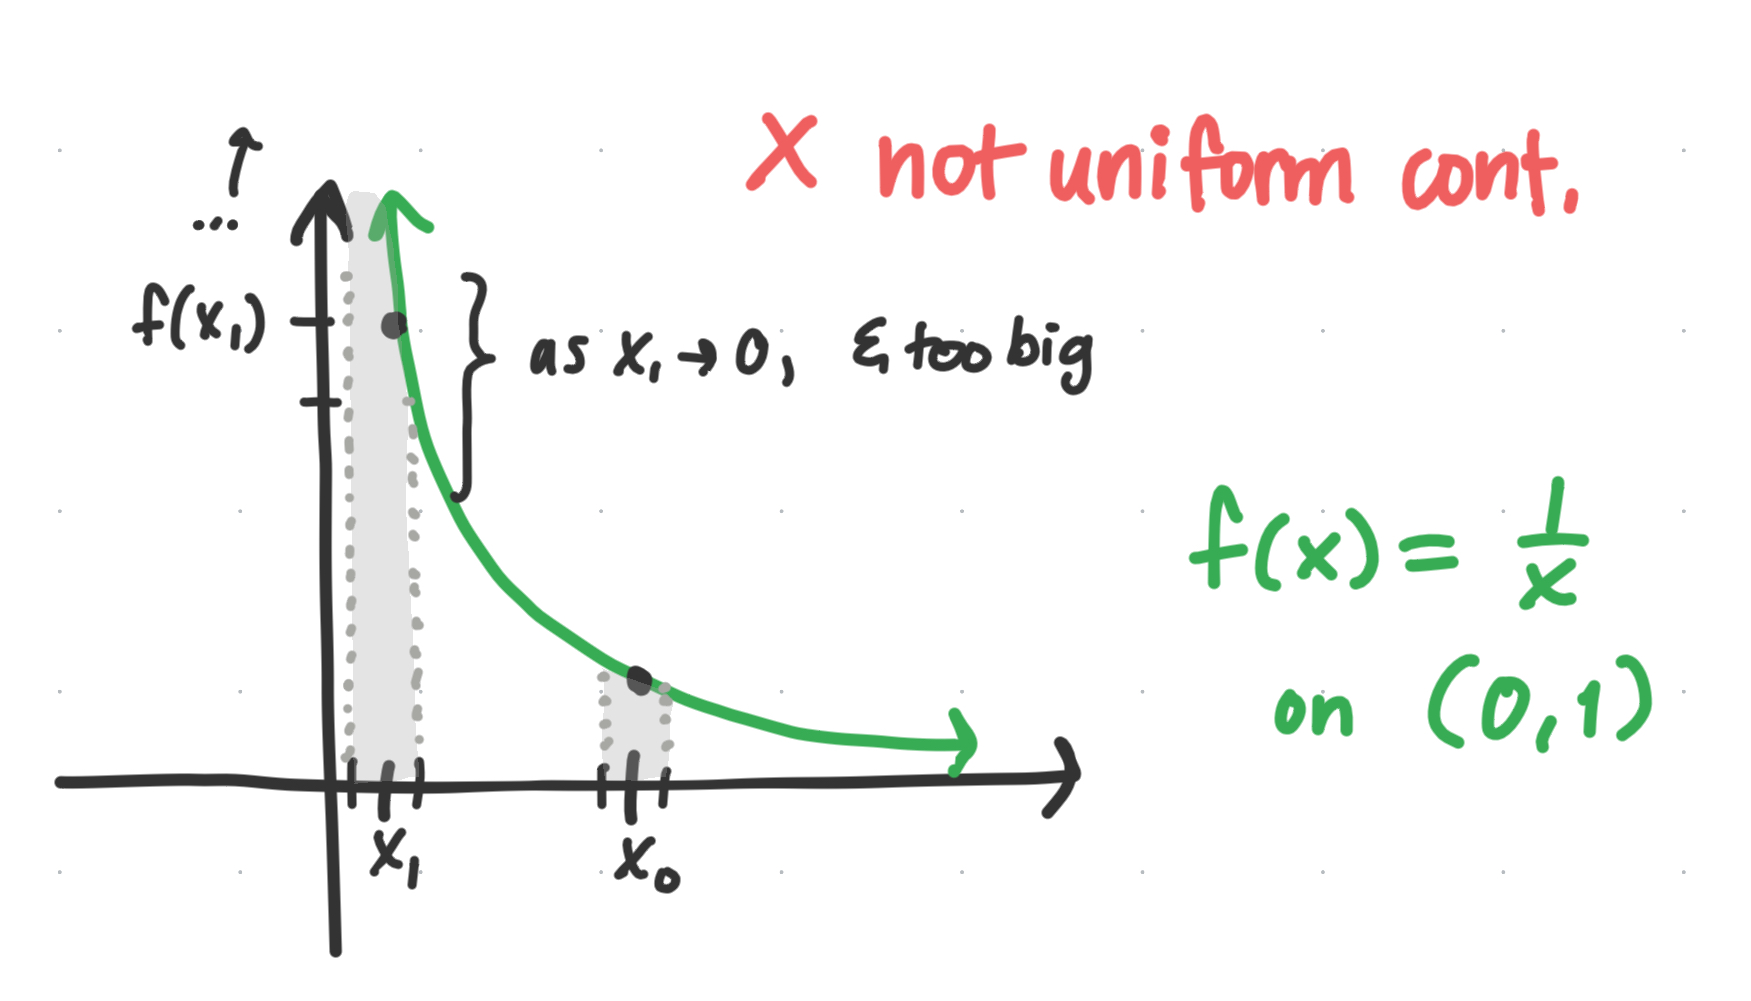 X not uniform cont.
...
f(x₁)
as x₁ → 0, ε too big
f(x) = 1/x
on (0,1)
x₁
x₀